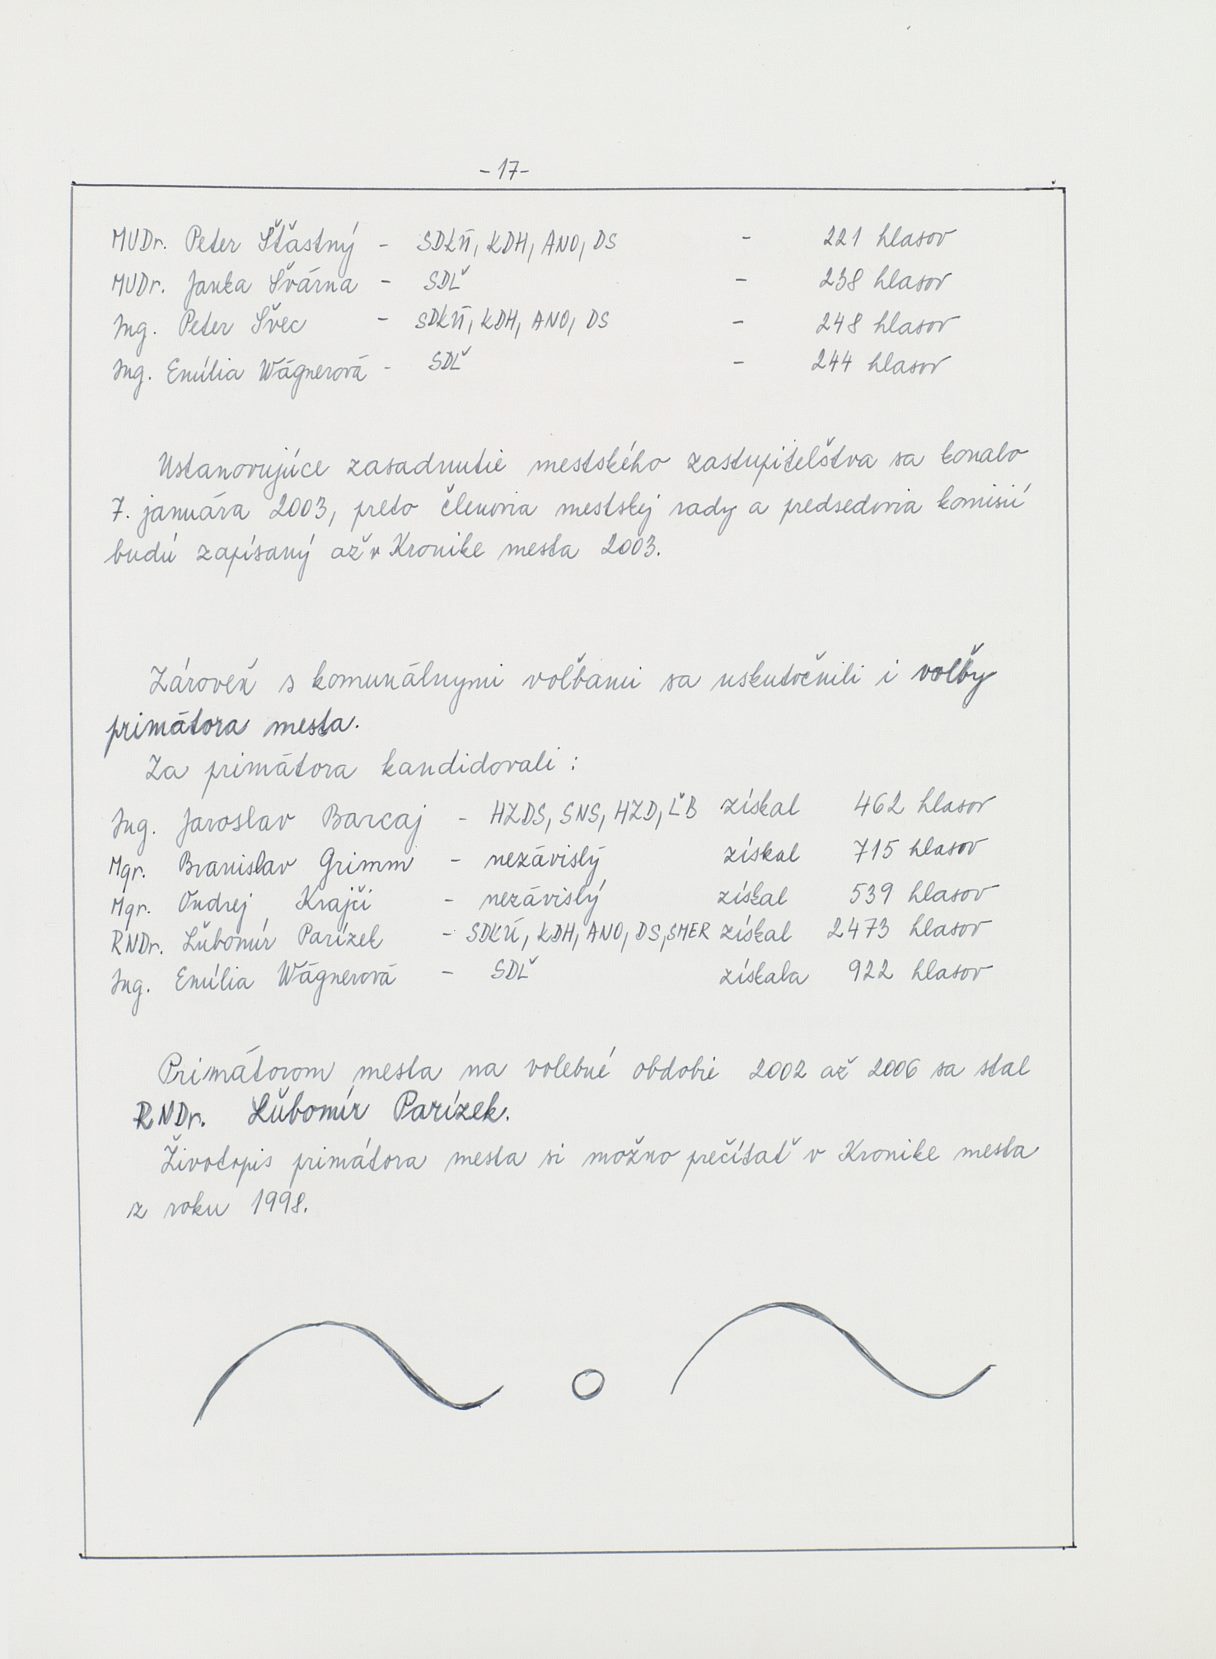 -17-
MUDr. Peter Šťastný - SDKÚ, KDH, ANO, DS - 221 hlasov
MUDr. Janka Švárna - SDĽ - 238 hlasov
Ing. Peter Švec - SDKÚ, KDH, ANO, DS - 248 hlasov
Ing. Emília Wágnerová - SDĽ - 244 hlasov
Ustanovujúce zasadnutie mestského zastupiteľstva sa konalo
7. januára 2003, preto členovia mestskej rady a predsedovia komisií
budú zapísaný až v Kronike mesta 2003.
Zároveň s komunálnymi voľbami sa uskutočnili i voľby
primátora mesta.
Za primátora kandidovali :
Ing. Jaroslav Barcaj - HZDS, SNS, HZD, ĽB získal 462 hlasov
Mgr. Branislav Grimm - nezávislý získal 715 hlasov
Mgr. Ondrej Krajči - nezávislý získal 539 hlasov
RNDr. Ľubomír Parízek - SDKÚ, KDH, ANO, DS, SMER získal 2473 hlasov
Ing. Emília Wágnerová - SDĽ získala 922 hlasov
Primátorom mesta na volebné obdobie 2002 až 2006 sa stal
RNDr. Ľubomír Parízek.
Životopis primátora mesta si možno prečítať v Kronike mesta
z roku 1998.